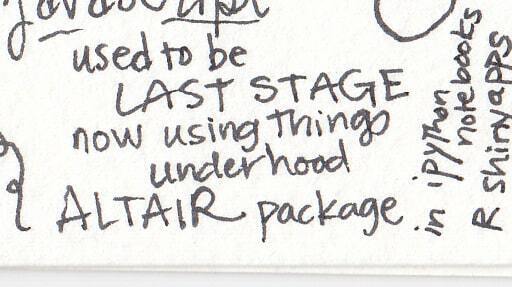 JavaScript
used to be
LAST STAGE
now using things
underhood
ALTAIR package
in ipython
notebooks
R shiny apps